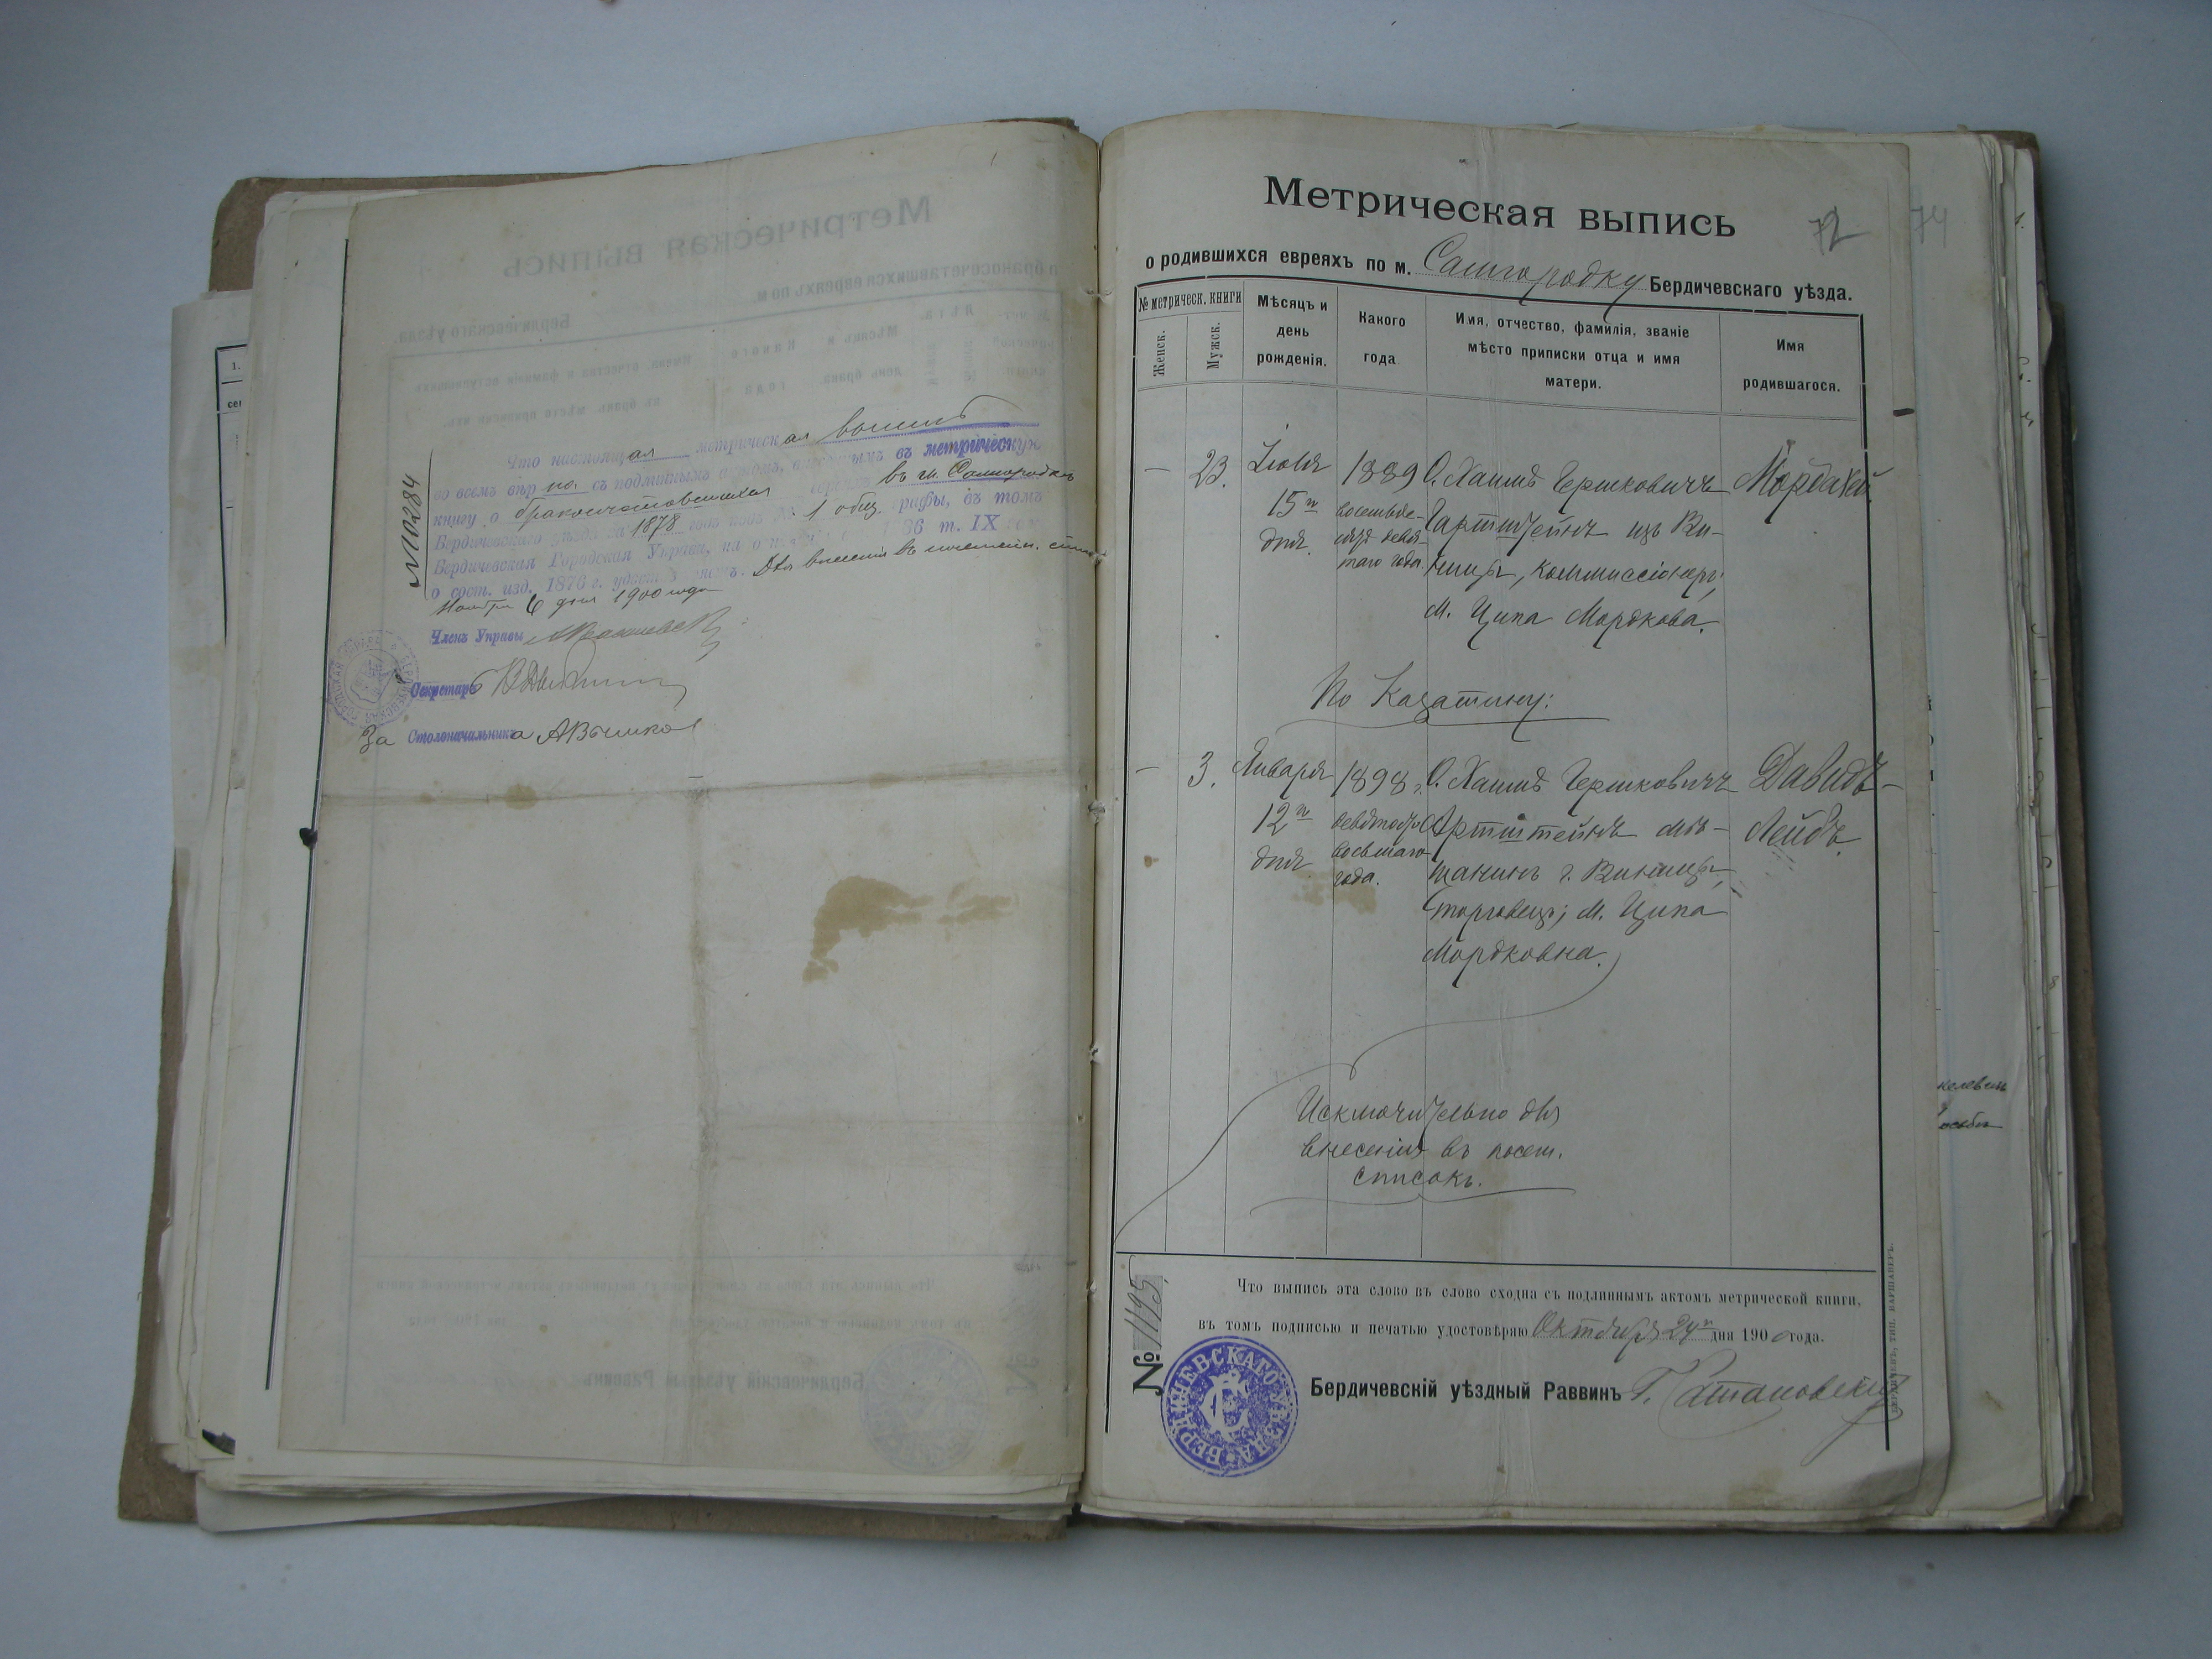 №10284
Что настоящая метрическая выпись
во всемъ вѣрна съ подлиннымъ актомъ, въ метрическую
книгу о бракосочетавшихся въ м. Самгородкѣ
Бердичевскаго уѣзда за 1878 годъ подъ № 1 общ. графы, въ томъ
Бердичевская Городская Управа, на 36 т. IX
о сост. изд. 1876 г. Для внесенія въ посемейн.
Ноября 6 дня 1900 года
Членъ Управы
Секретарь
За Столоначальника
Метрическая выпись
72
74
о родившихся евреяхъ по м. Самгородку Бердичевскаго уѣзда.
№ метрическ. книги
Женск.
Мужск.
Мѣсяцъ и
день
рожденія.
Какого
года
Имя, отчество, фамилія, званіе
мѣсто приписки отца и имя
матери.
Имя
родившагося.
— 23. Іюля 1889 О. Хаимъ Гершковичъ Мордахей.
15го восемьде- Гартштейнъ изъ Ви-
дня. сятъ девя-
таго года. нницы, коммиссіонеръ;
М. Ципа Мордкова.
По Казатину:
— 3. Января 1898 г. О. Хаимъ Гершковичъ Давидъ-
12го девяносто Артштейнъ мѣ- Лейбъ.
дня восьмаго
года. щанинъ г. Винницы,
торговецъ; М. Ципа
Мордковна.
Исключительно для
внесенія въ посем.
списокъ.
Что выпись эта слово въ слово сходна съ подлиннымъ актомъ метрической книги,
въ томъ подписью и печатью удостовѣряю Октября 24го дня 1900 года.
№ 1195
Бердичевскій уѣздный Раввинъ Г.
БЕРДИЧЕВЪ, ТИП. ВАРШАВЕРЪ.